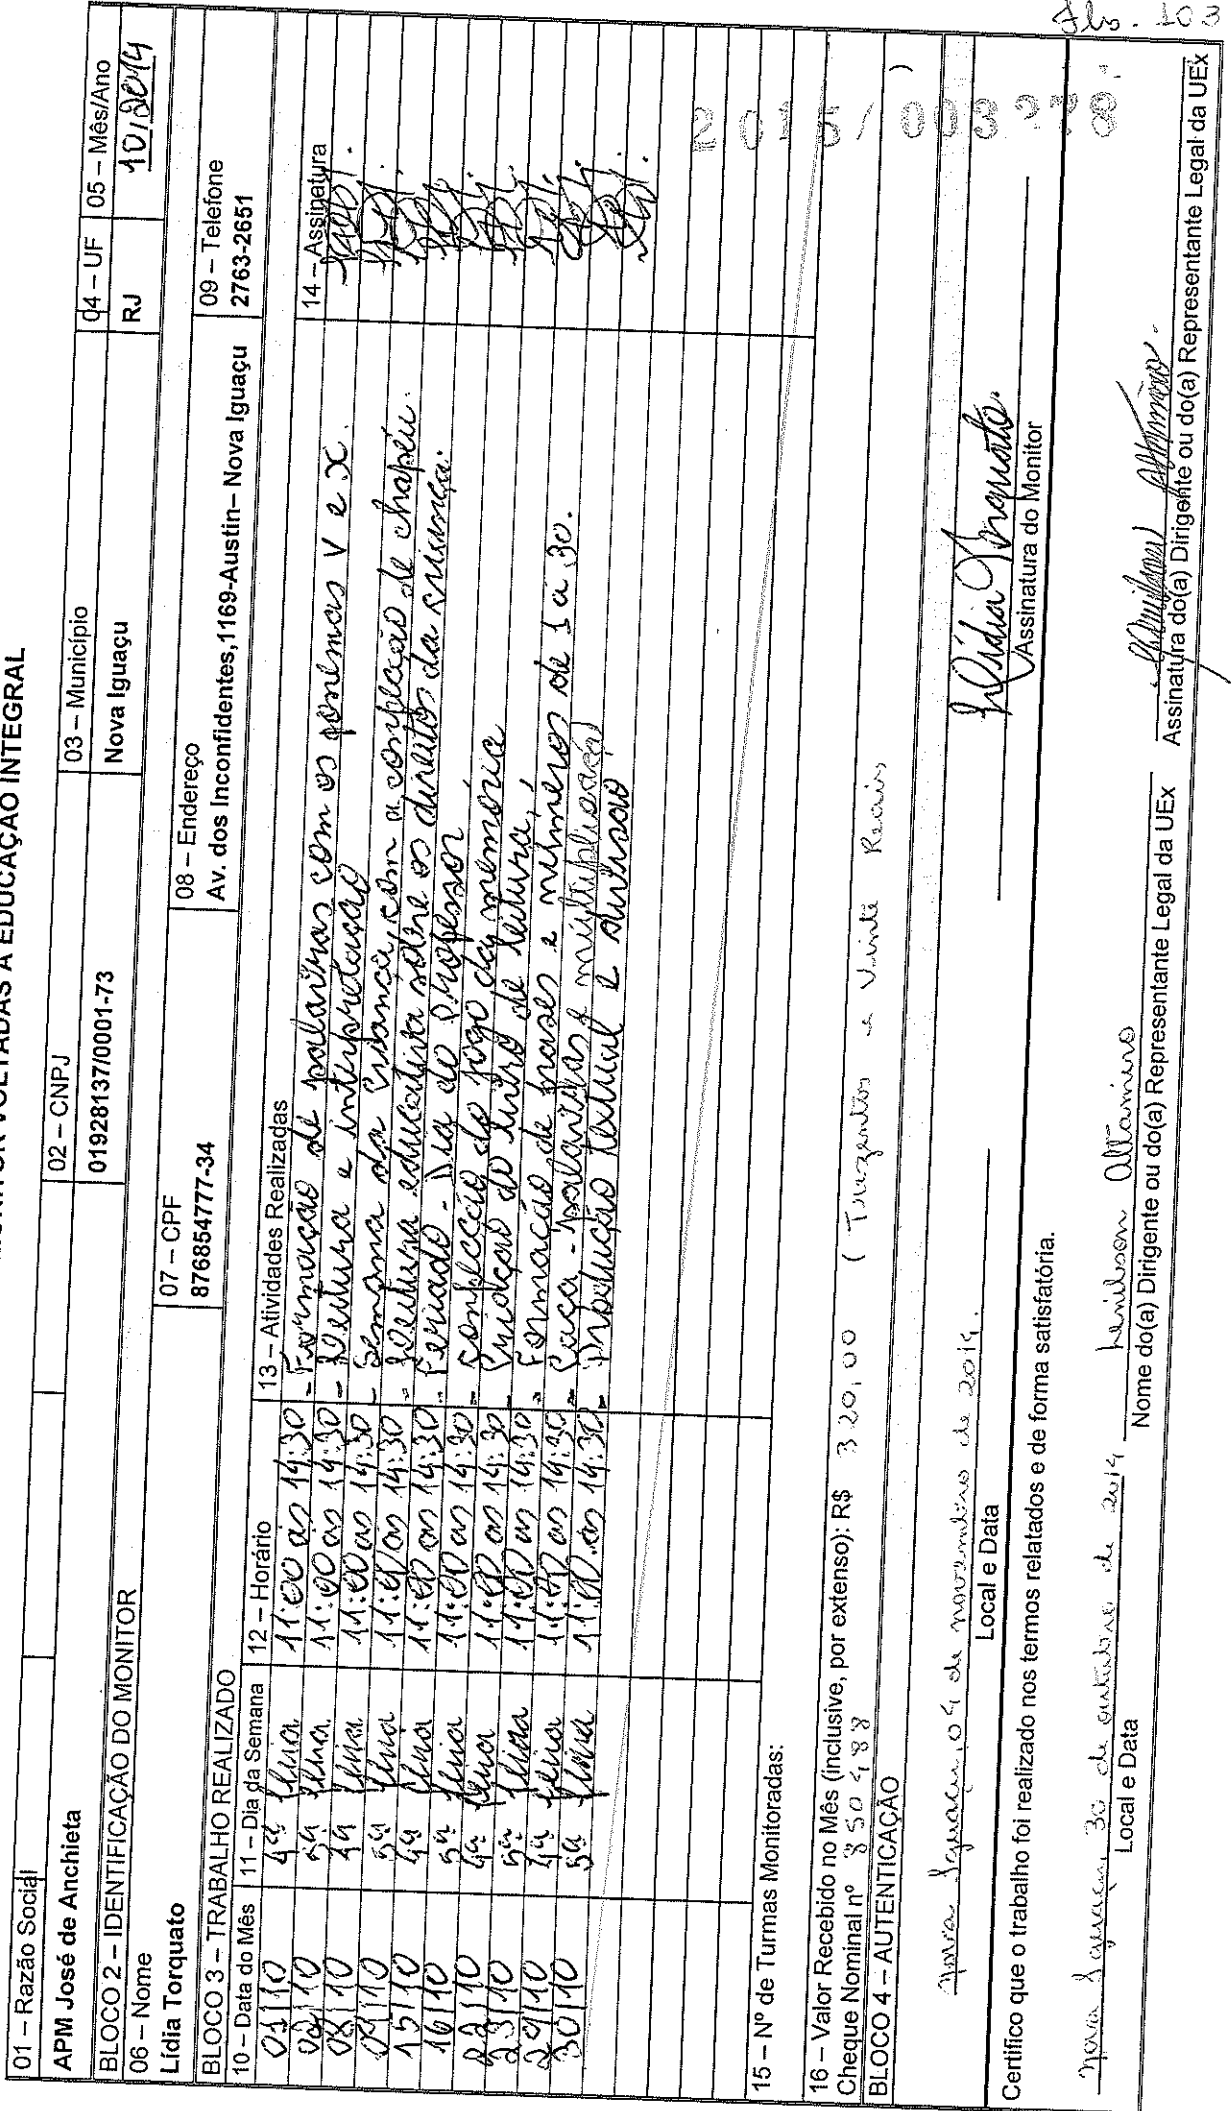 MONITOR VOLTADAS A EDUCAÇÃO INTEGRAL
fls. 103
01 – Razão Social
02 – CNPJ
03 – Município
04 – UF
05 – Mês/Ano
APM José de Anchieta
01928137/0001-73
Nova Iguaçu
RJ
10/2014
BLOCO 2 – IDENTIFICAÇÃO DO MONITOR
06 – Nome
07 – CPF
08 – Endereço
09 – Telefone
Lídia Torquato
876854777-34
Av. dos Inconfidentes,1169-Austin– Nova Iguaçu
2763-2651
BLOCO 3 – TRABALHO REALIZADO
10 – Data do Mês
11 – Dia da Semana
12 – Horário
13 – Atividades Realizadas
14 – Assinatura
01/10 4ª feira 11:00 às 14:30 - Formação de palavras com os fonemas V e X.
02/10 5ª feira 11:00 às 14:30 - Leitura e interpretação
08/10 4ª feira 11:00 as 14:30 - Semana da criança, com a confecção de chapéu.
09/10 5ª feira 11:00 as 14:30 - Leitura educativa sobre os direitos da criança.
15/10 4ª feira 11:00 as 14:30 - Feriado - Dia do professor
16/10 5ª feira 11:00 as 14:30 - Confecção do jogo da memória
22/10 4ª feira 11:00 as 14:30 - Criação do livro de leitura,
23/10 5ª feira 11:00 as 14:30 - Formação de frases e números de 1 a 30.
29/10 4ª feira 11:00 as 14:30 - Caça-palavras e multiplicação
30/10 5ª feira 11:00 as 14:30 - Produção textual e divisão
15 – Nº de Turmas Monitoradas:
16 – Valor Recebido no Mês (inclusive, por extenso): R$ 320,00 ( Trezentos e Vinte Reais )
Cheque Nominal nº 850488
BLOCO 4 – AUTENTICAÇÃO
Nova Iguaçu, 04 de novembro de 2014.
Lídia Torquato.
Local e Data
Assinatura do Monitor
Certifico que o trabalho foi realizado nos termos relatados e de forma satisfatória.
Nova Iguaçu, 30 de outubro de 2014
Lenilson Altamiro
Local e Data
Nome do(a) Dirigente ou do(a) Representante Legal da UEx
Assinatura do(a) Dirigente ou do(a) Representante Legal da UEx